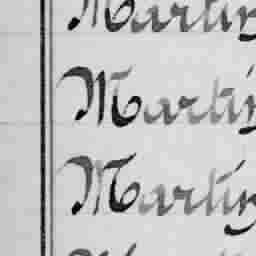 Martín
Martín
Martín